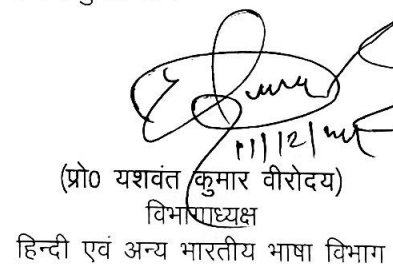 (प्रो0 यशवंत कुमार वीरोदय)
विभागाध्यक्ष
हिन्दी एवं अन्य भारतीय भाषा विभाग